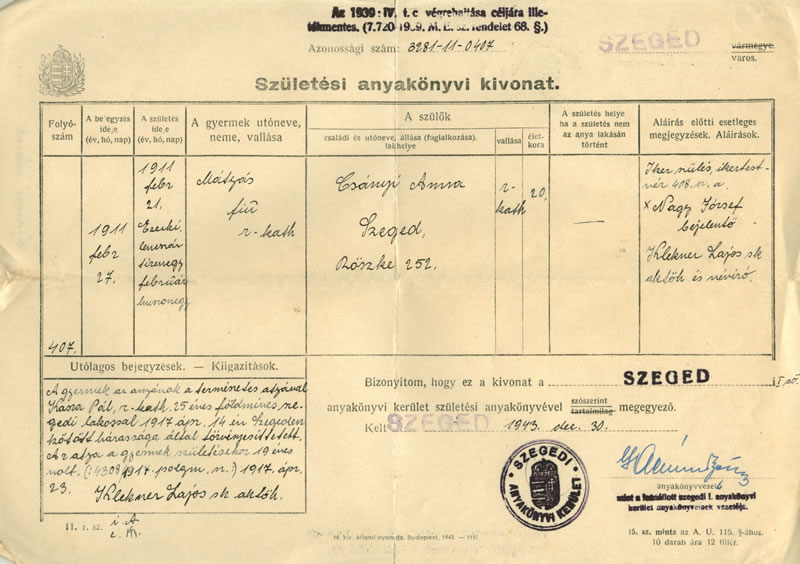 Az 1939:IV. t.c végrehajtása céljára ille-
tékmentes. (7.720-1939. M. E. sz. rendelet 68. §.)
Azonossági szám: 3281-11-0407
SZEGED
vármegye
város.
Születési anyakönyvi kivonat.
Folyó-
szám
A bejegyzés
ideje
(év, hó, nap)
A születés
ideje
(év, hó, nap)
A gyermek utóneve,
neme, vallása
A szülők
családi és utóneve, állása (foglalkozása),
lakhelye
vallása
élet-
kora
A születés helye
ha a születés nem
az anya lakásán
történt
Aláírás előtti esetleges
megjegyzések. Aláírások.
407.
1911
febr
27.
1911
febr
21.
Ezerki-
lencszáz
tizenegy
február
huszonegy
Mátyás
fiú
r-kath
Csányi Anna
Szeged,
Röszke 252.
r-
kath
20.
—
Iker szülés, ikertest-
vér 408 sz. a.
x Nagy József
bejelentő
Klekner Lajos sk
aktöh és névíró.
Utólagos bejegyzések. — Kiigazítások.
A gyermek az anyának a természetes atyával
Kassa Pál, r-kath. 25 éves földmíves sze-
gedi lakossal 1917 ápr. 14 én Szegeden
kötött házassága által törvényesíttetett.
Az atya a gyermek születésekor 19 éves
volt. (:4308/1917 polgm. sz.:) 1917. ápr.
23. Klekner Lajos sk aktöh.
Bizonyítom, hogy ez a kivonat a SZEGED I. ső
anyakönyvi kerület születési anyakönyvével szószerint
tartalmilag megegyező.
Kelt SZEGED 1943. dec. 30.
SZEGEDI
ANYAKÖNYVI KERÜLET
anyakönyvvezető
mint a felállított szegedi I. anyakönyvi
kerület anyakönyveinek vezetője.
11. r. sz.
M. kir. állami nyomda, Budapest, 1943
15. sz. minta az A. U. 115. §-ához.
10 darab ára 12 fillér.